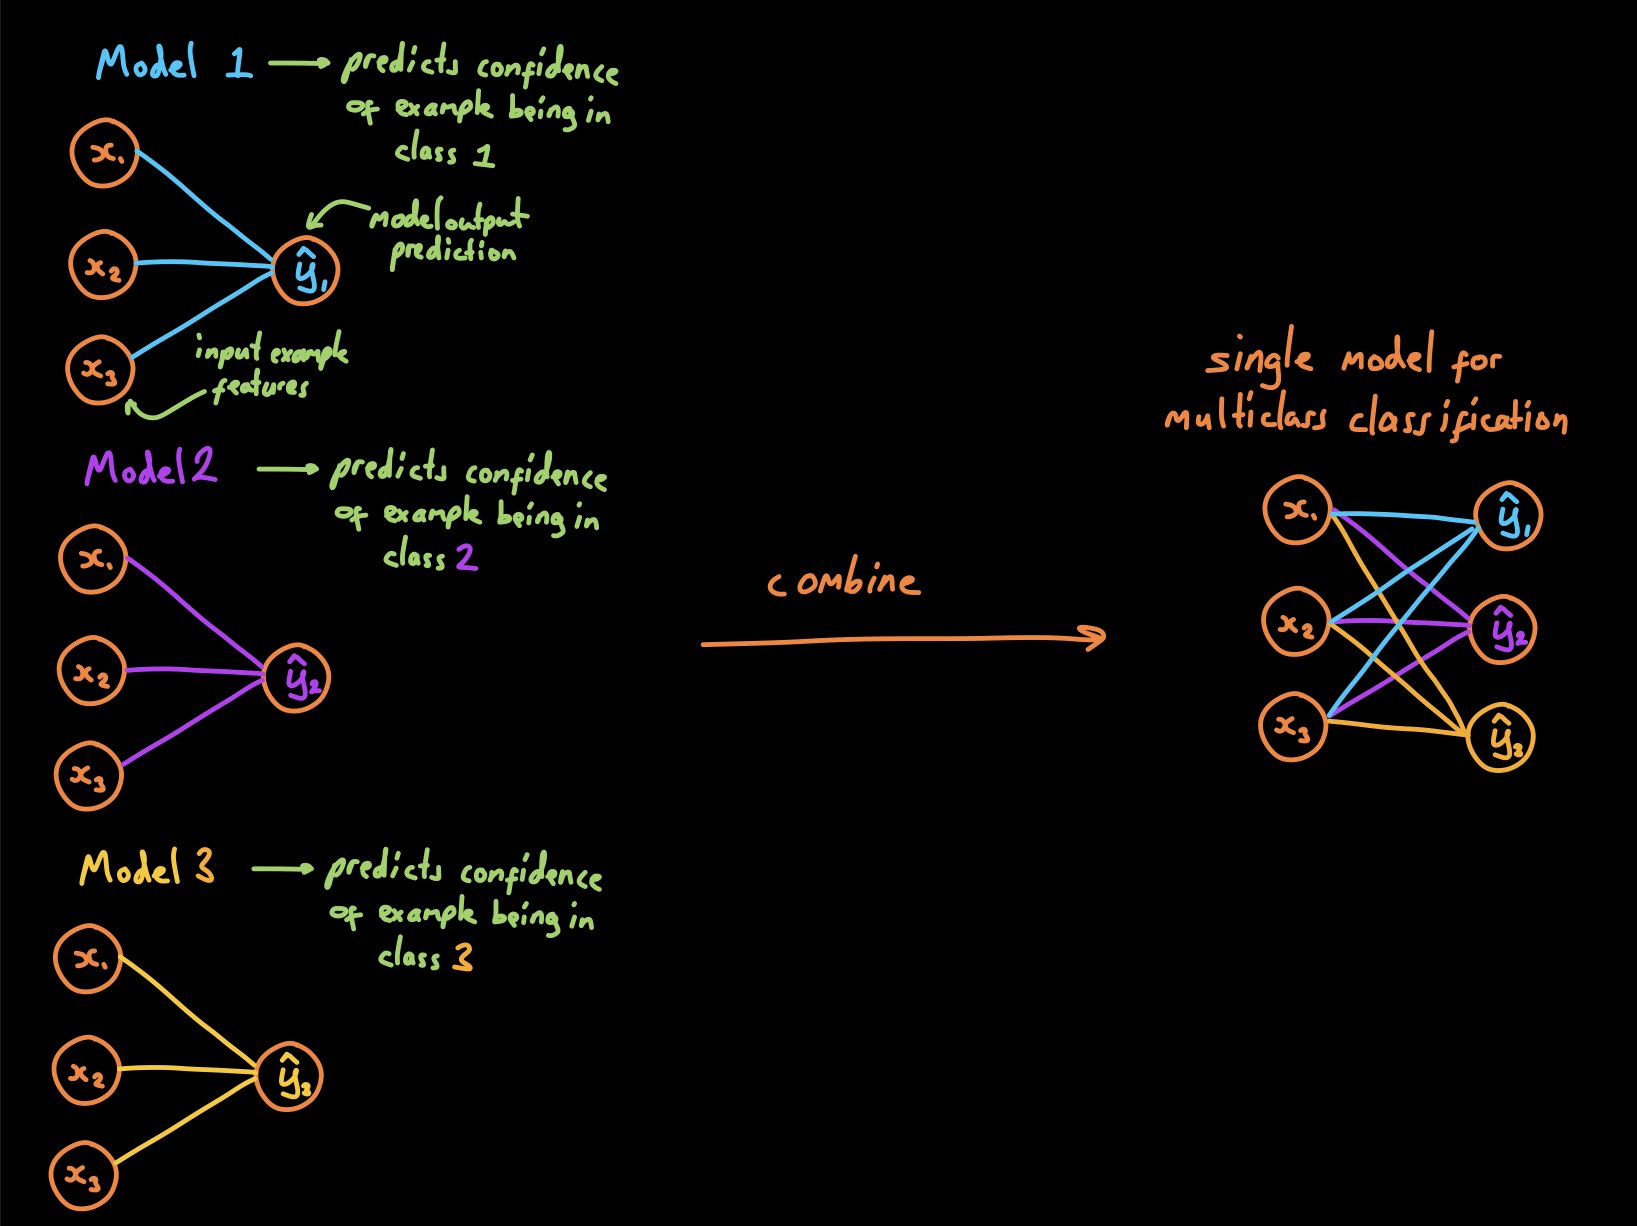 Model 1 → predicts confidence
of example being in
class 1
x₁
model output
prediction
x₂
ŷ₁
x₃
input example
features
Model 2 → predicts confidence
of example being in
class 2
x₁
x₂
ŷ₂
x₃
Model 3 → predicts confidence
of example being in
class 3
x₁
x₂
ŷ₃
x₃
combine
single model for
multiclass classification
x₁ ŷ₁
x₂ ŷ₂
x₃ ŷ₃